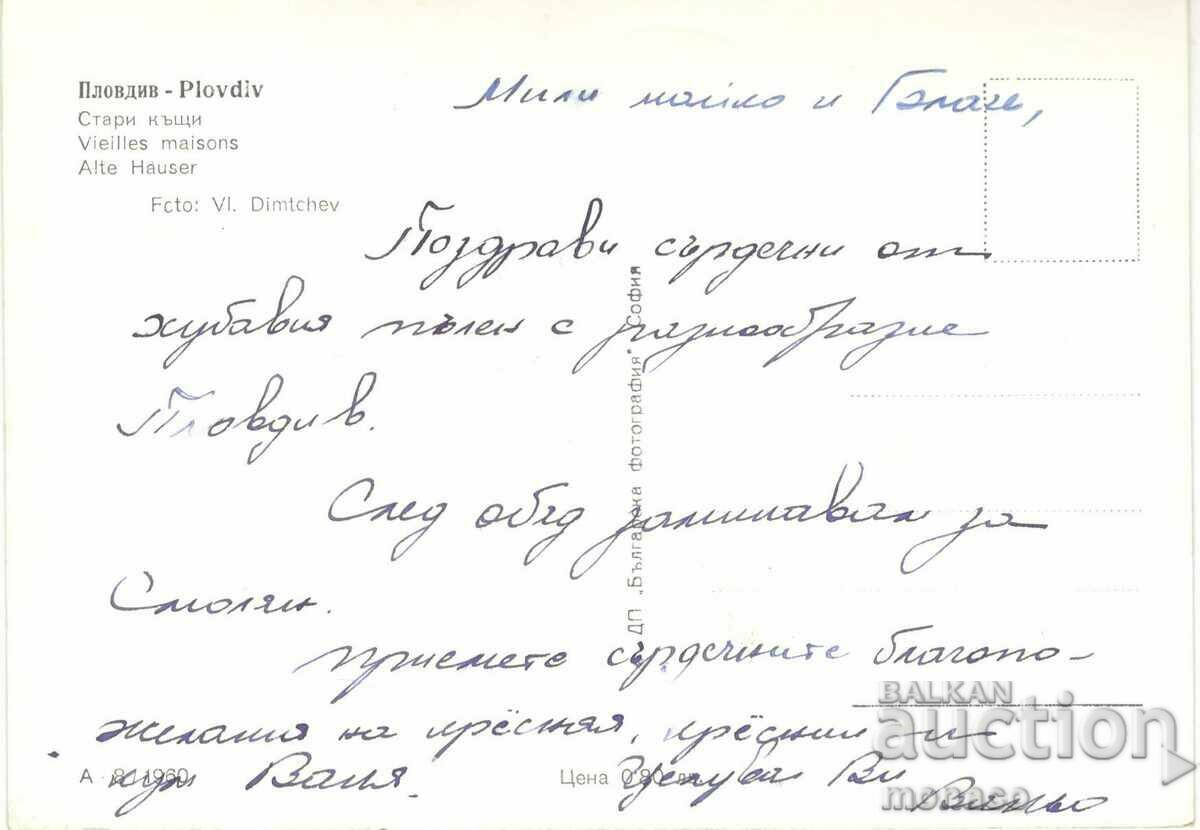 Пловдив - Plovdiv
Стари къщи
Vieilles maisons
Alte Hauser
Foto: Vl. Dimtchev
Мили майко и
Поздрави сърдечни от
хубавия пълен с разнообразие
Пловдив.
След обяд заминавам за
Смолян.
приемете сърдечните благопо-
желания на крёсная, крёсний и
Ваня. Целувам Ви
А 8 1960
Цена 0·80 лв.
ДП „Българска фотография" София
BALKAN
auction